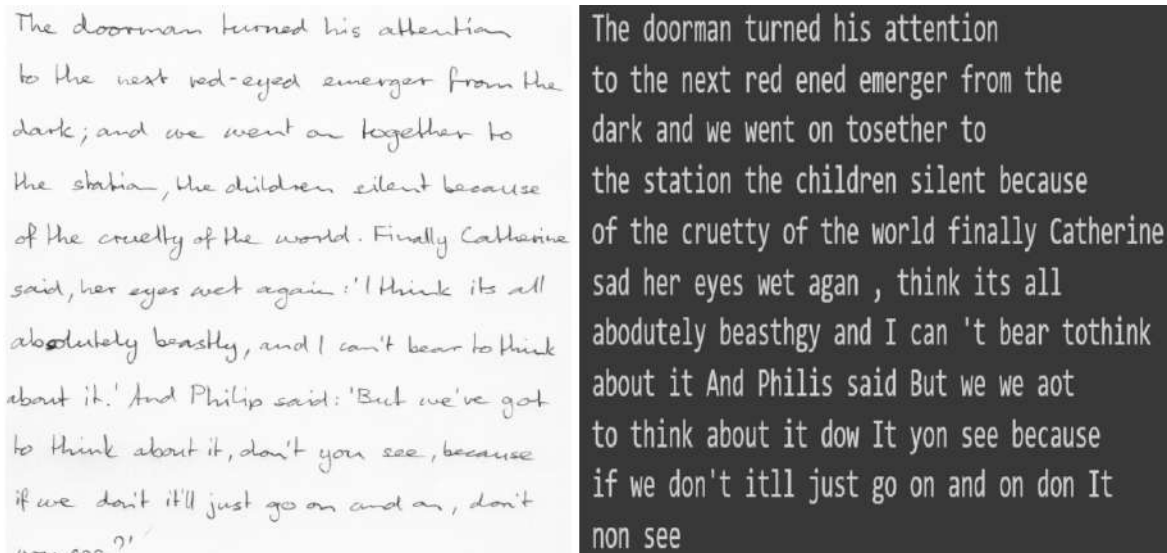 The doorman turned his attention
to the next red-eyed emerger from the
dark; and we went on together to
the station, the children silent because
of the cruelty of the world. Finally Catherine
said, her eyes wet again: 'I think its all
absolutely beastly, and I can't bear to think
about it.' And Philip said: 'But we've got
to think about it, don't you see, because
if we don't it'll just go on and on, don't
The doorman turned his attention
to the next red ened emerger from the
dark and we went on tosether to
the station the children silent because
of the cruetty of the world finally Catherine
sad her eyes wet agan , think its all
abodutely beasthgy and I can 't bear tothink
about it And Philis said But we we aot
to think about it dow It yon see because
if we don't itll just go on and on don It
non see